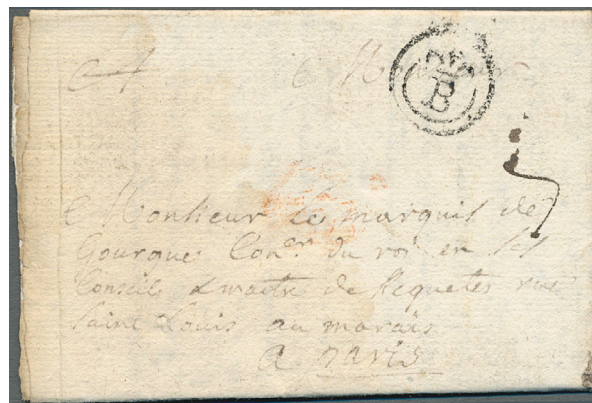 B
Monsieur le marquis de
Gourgues Con.er du roi en ses
Conseils & maitre de Requetes rue
Saint Louis au marais
a paris